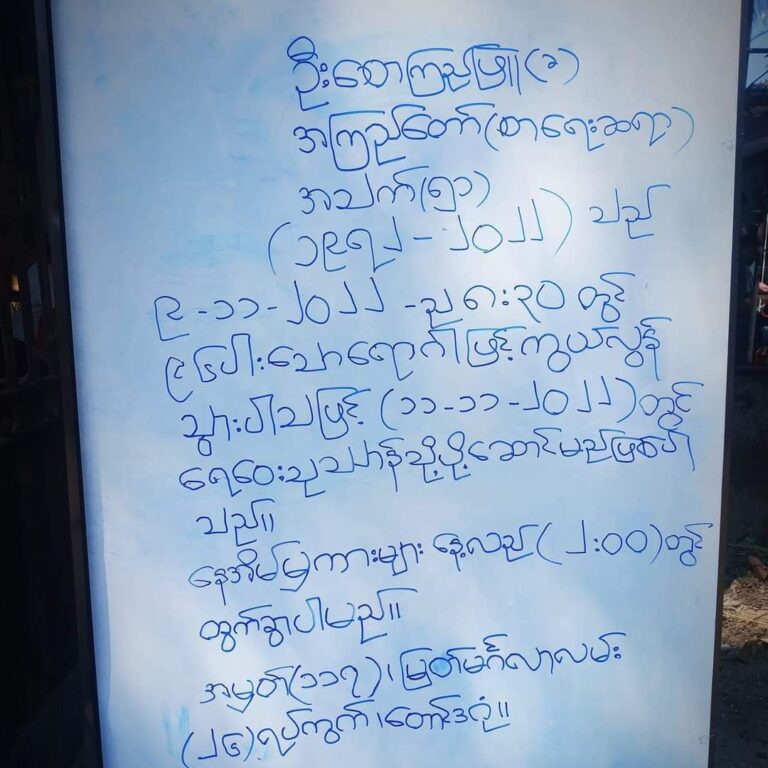 ဦးစောကြည်ဖြူ(ခ)
အကြည်တော်(စာရေးဆရာ)
အသက်(၅၁)
(၁၉၇၂-၂၀၂၂) သည်
၉-၁၁-၂၀၂၂-ည ၈:၃၀ တွင်
၉ ပါးသောရောဂါဖြင့်ကွယ်လွန်
သွားပါသဖြင့် (၁၁-၁၁-၂၀၂၂)တွင်
ရေဝေးသုသာန်သို့ပို့ဆောင်မည်ဖြစ်ပါ
သည်။
နေအိမ်မှကားများ နေ့လည်(၂:၀၀)တွင်
ထွက်ခွာပါမည်။
အမှတ်(၁၁၇)၊မြတ်မင်္ဂလာလမ်း
(၂၆)ရပ်ကွက်၊တောင်ဒဂုံ။